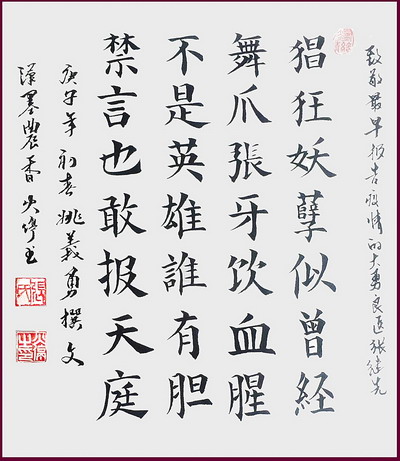 致敬最早报告疫情的大勇良医张继先
猖狂妖孽似曾経
舞爪張牙饮血腥
不是英雄誰有胆
禁言也敢报天庭
庚子年初春姚義勇撰文
漢墨農香书